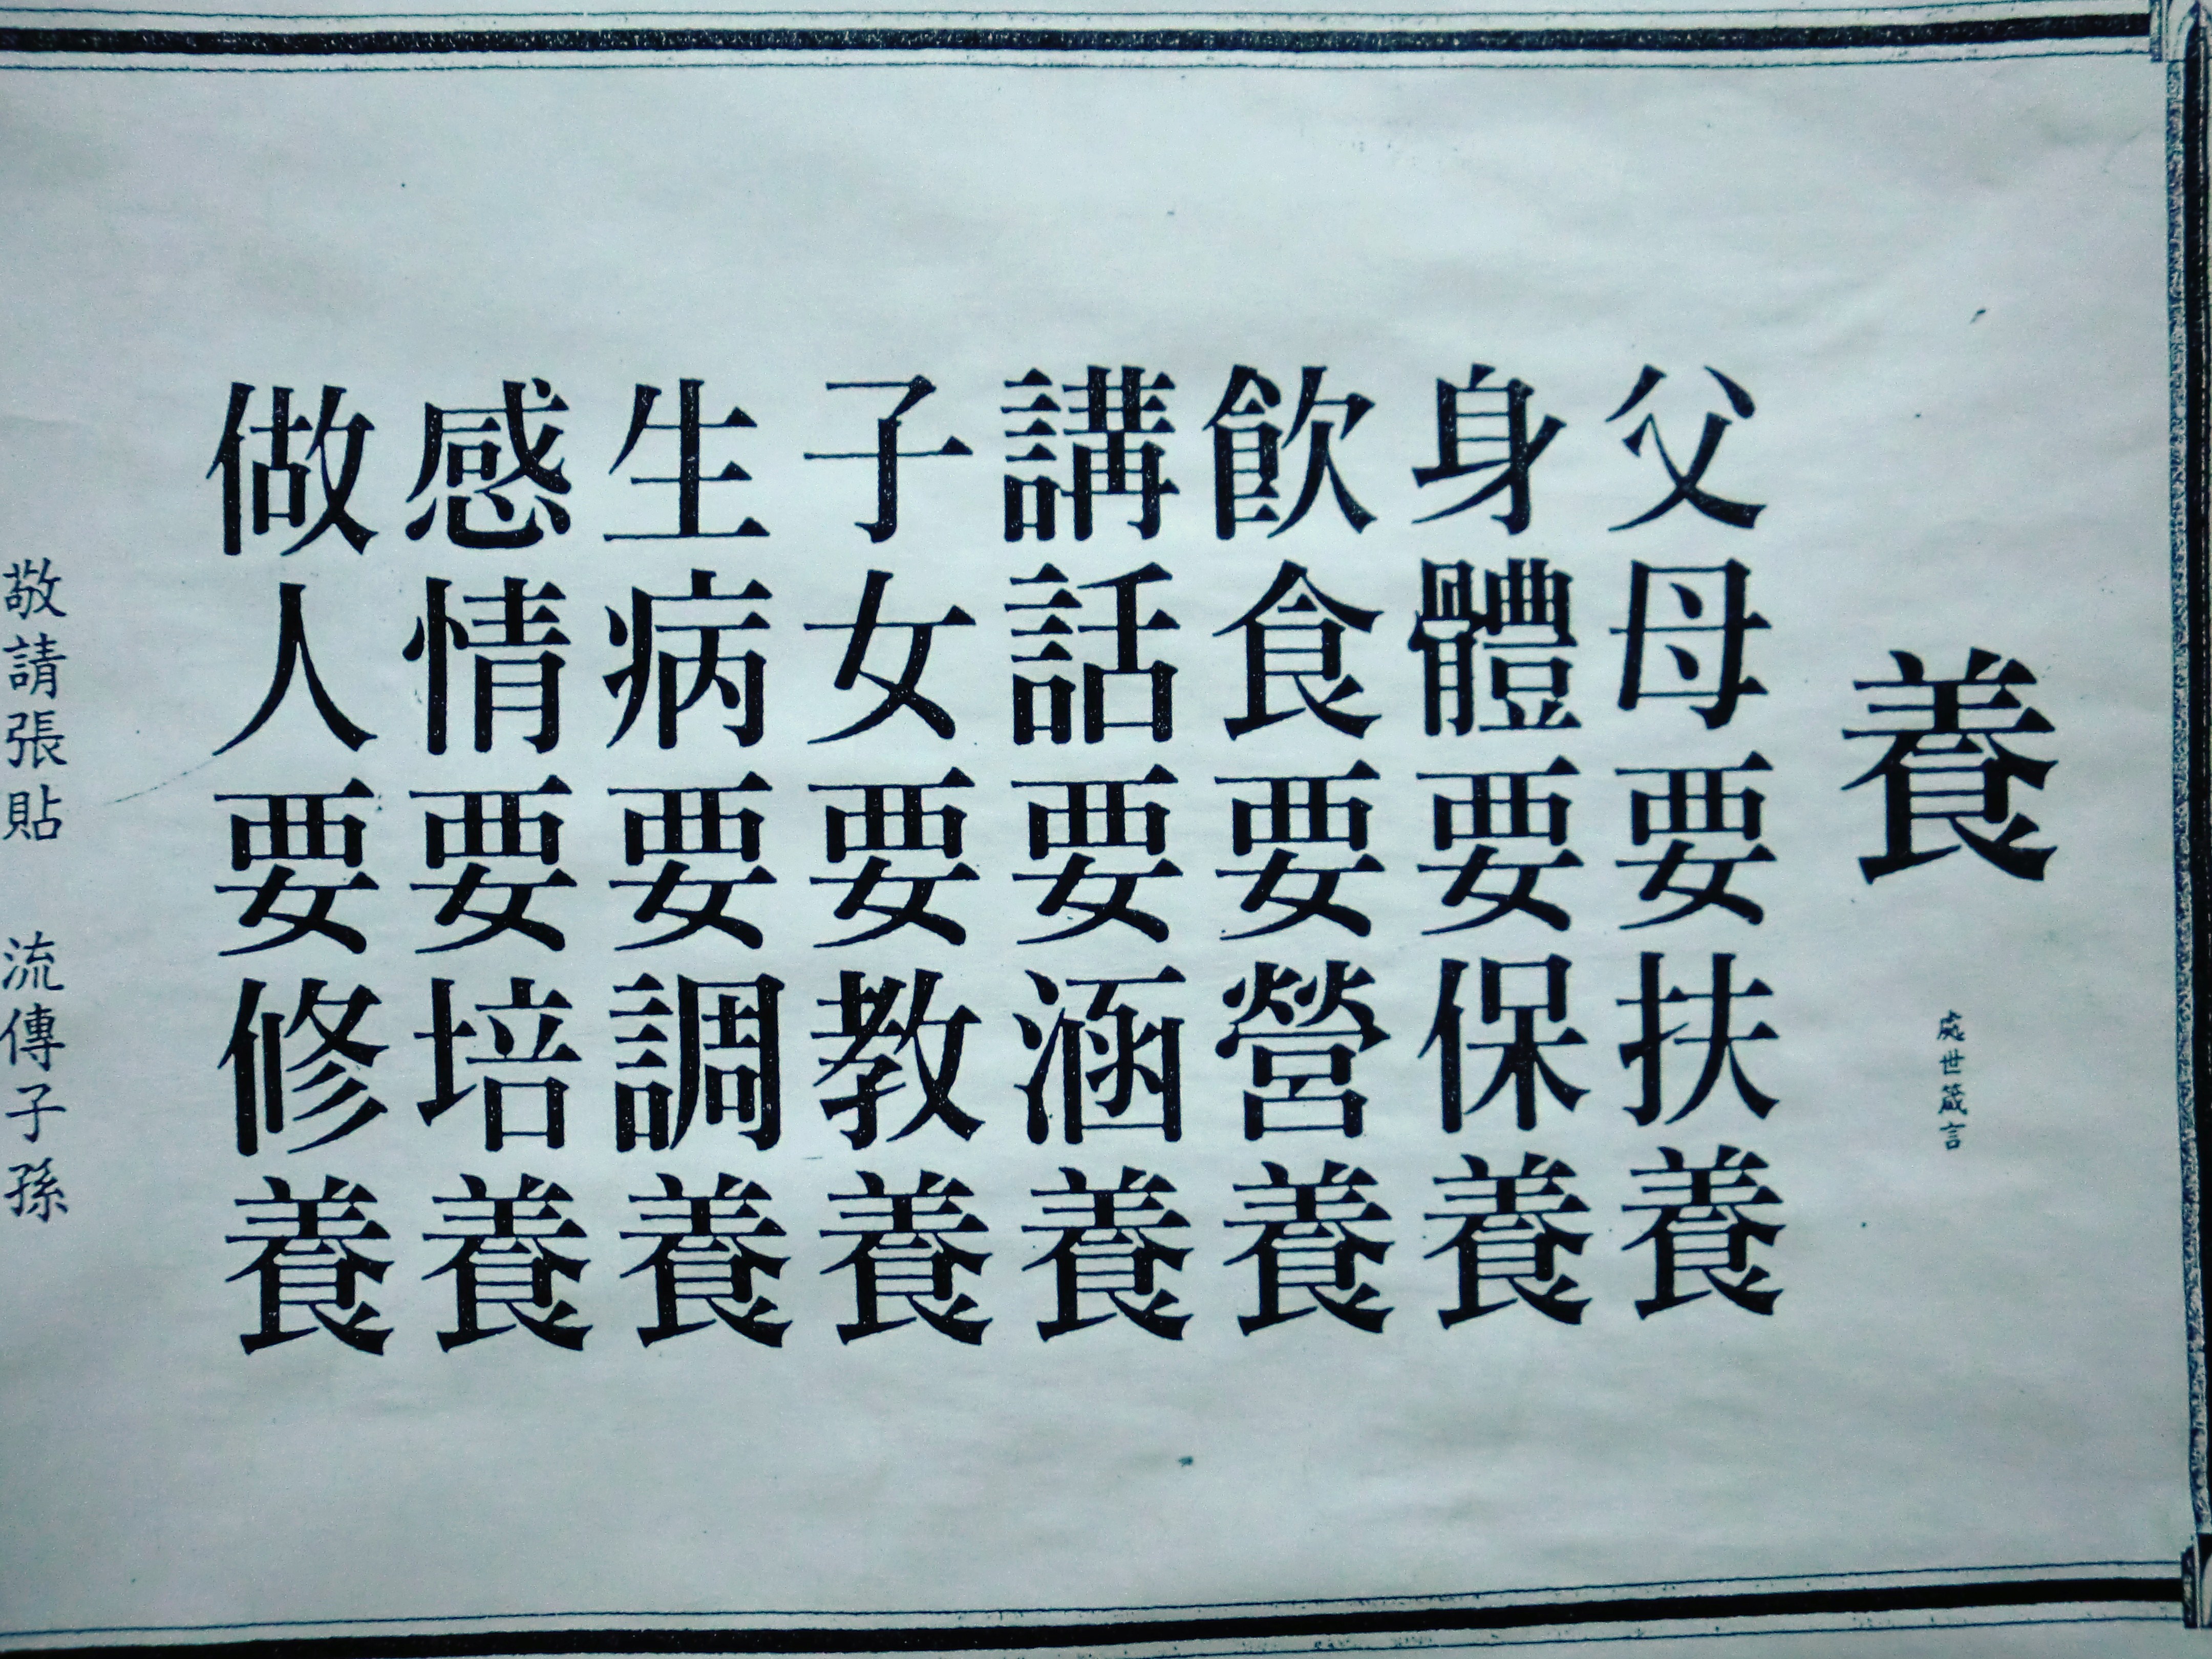 養
處世箴言
父母要扶養
身體要保養
飲食要營養
講話要涵養
子女要教養
生病要調養
感情要培養
做人要修養
敬請張貼 流傳子孫